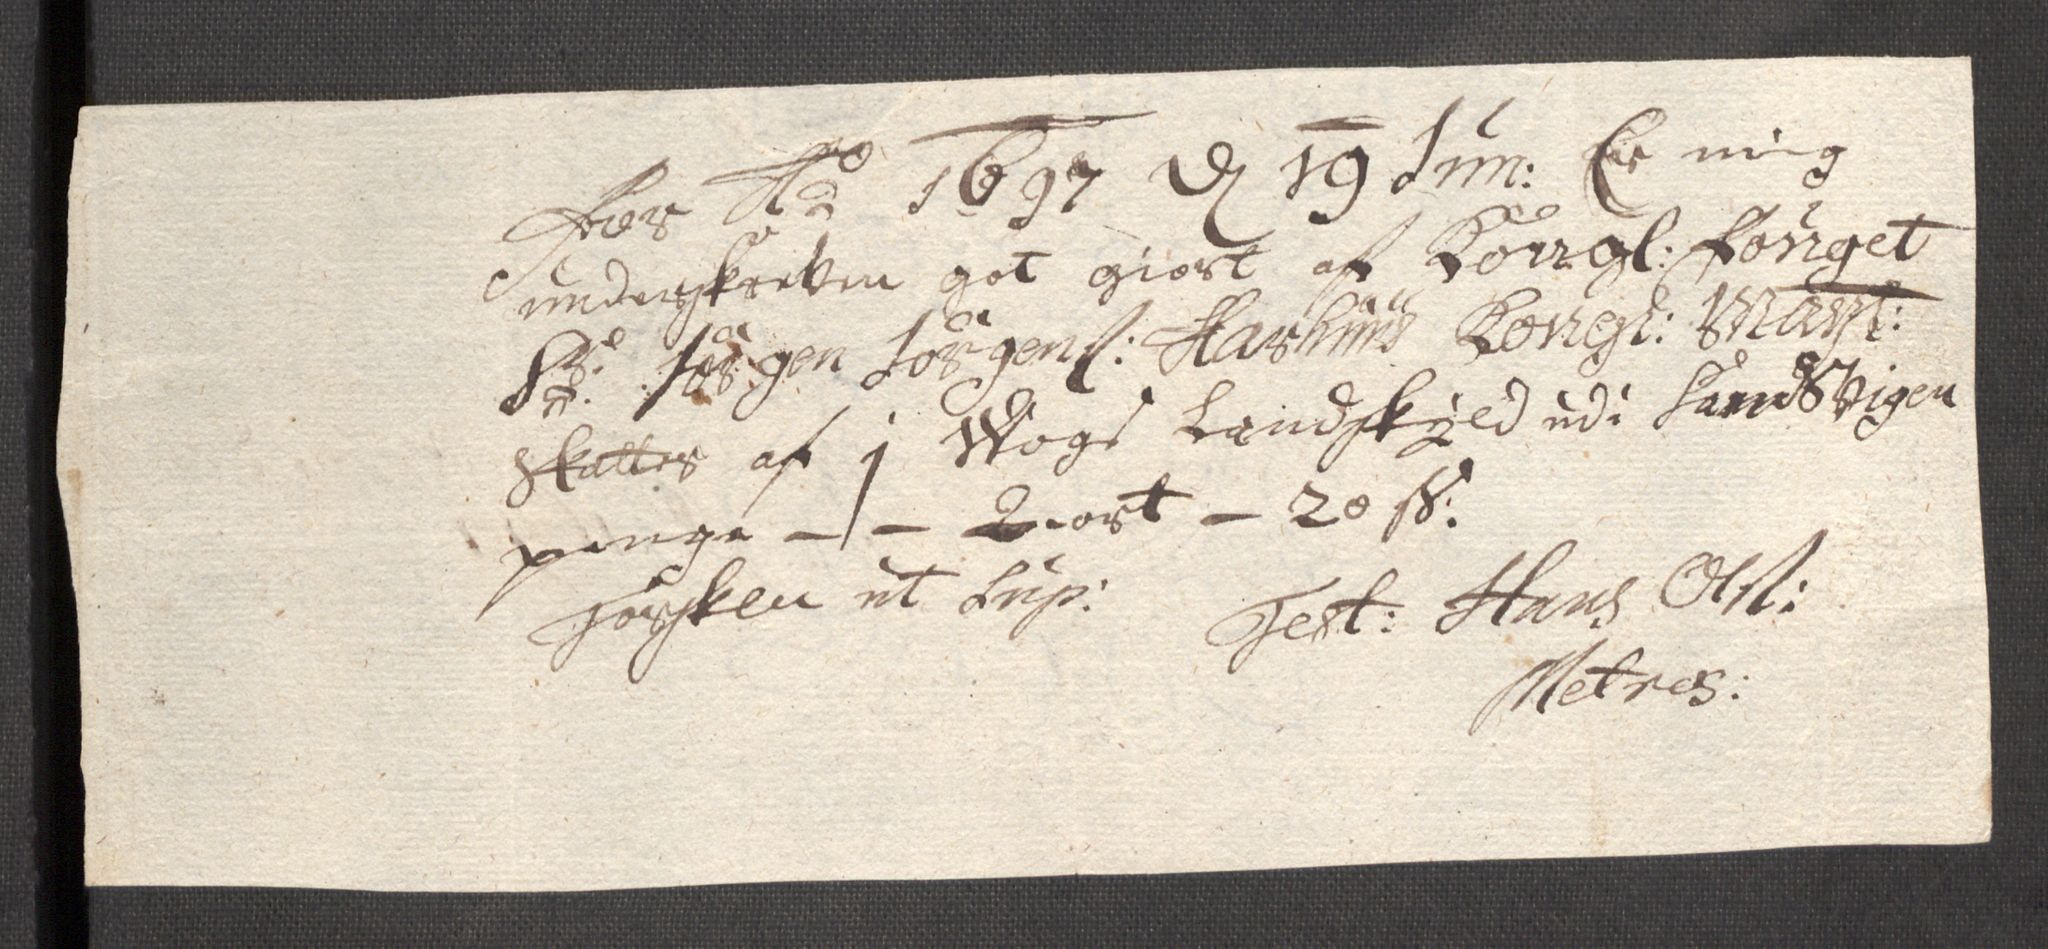 For Ao 1697 d 19 Jun: Er mig
underskreben got giort af Kongl: fouget
Sr: Jørgen Jørgens: Harhuus Kongl: Mayt:
skatter af j Wogs Landskyld udi Sandvigen
penge – 1 – ort – 20 s:
Torsken ut sup: Test: Hans Ols:
Metres: